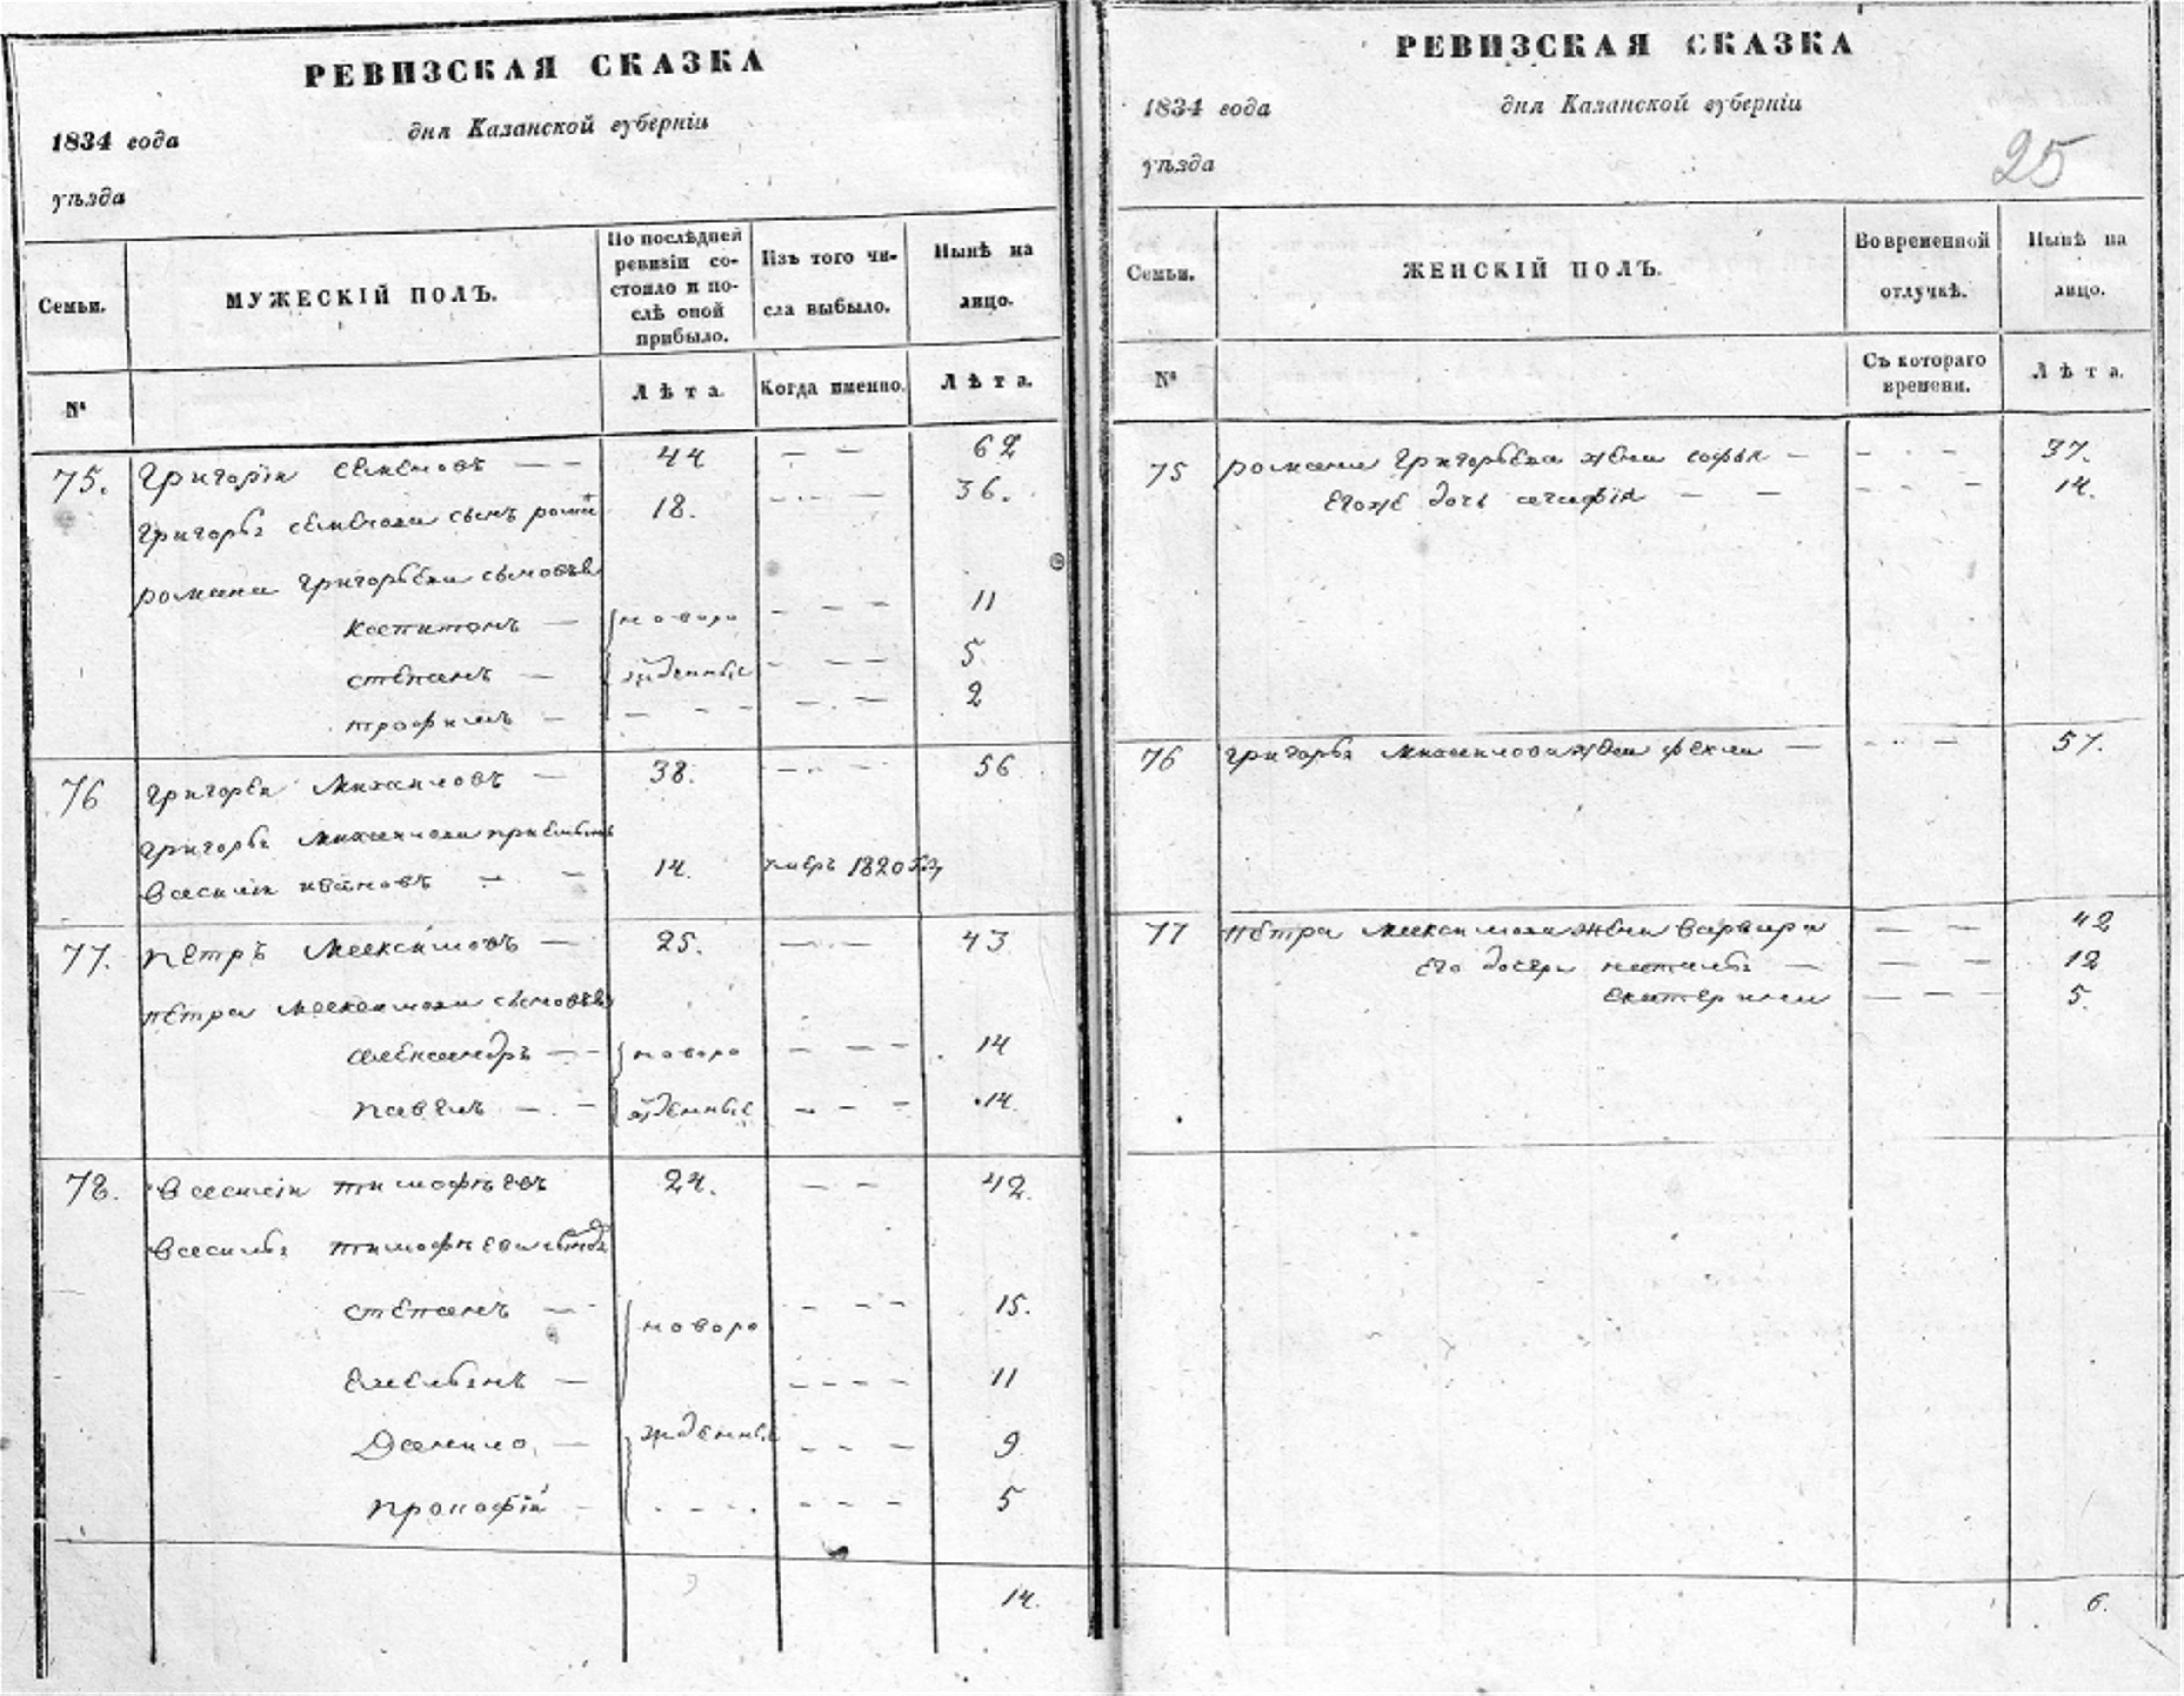 РЕВИЗСКАЯ СКАЗКА
1834 года дня Казанской губернiи
уѣзда
Семьи. МУЖЕСКIЙ ПОЛЪ. По послѣдней ревизiи состояло и послѣ оной прибыло. Изъ того числа выбыло. Нынѣ на лицо.
№ Лѣта. Когда именно. Лѣта.
75. Григорiи семеновъ — — 44 — — 62
Григорья семенова сынъ романъ 18. — — 36.
романа Григорьева сыновья
Капитонъ — новоро — — — 11
степанъ — жденные — — — 5
трофимъ — — — — 2
76 Григореи Михаиловъ — 38. — — 56
Григорья Михаилова приемышъ
Василiи ивановъ — — 14. умеръ 1820
77. петръ Максимовъ — 25. — — 43
петра Максимова сыновья
александръ — — новоро — — — 14
павелъ — — жденные — — — 14
78. Василiи тимофѣевъ 24. — — 42.
Василья тимофѣева
степанъ — новоро — — — 15.
Емельянъ — — — — — 11
Данило — жденные — — — 9
прокофiй — — — — 5
14.
РЕВИЗСКАЯ СКАЗКА
1834 года дня Казанской губернiи
уѣзда 25
Семьи. ЖЕНСКIЙ ПОЛЪ. Во временной отлучкѣ. Нынѣ на лицо.
№ Съ котораго времени. Лѣта.
75 романа Григорьева жена софья — — — 37.
Егоже дочь — — — — 14.
76 Григорья Михаилова жена фекла — — — 57.
77 петра Максимова жена варвара — — — 42
Его дочери наталья — — — — 12
екатерина — — — 5.
6.